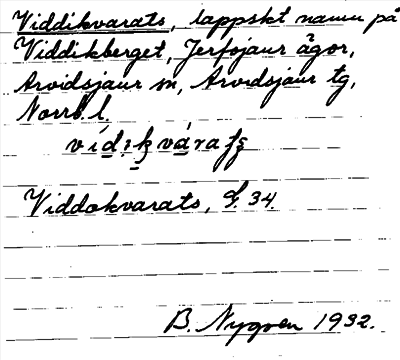 Viddikvarats, lappskt namn på
Viddikberget, Jerfojaur ägor,
Arvidsjaur sn, Arvidsjaur tg,
Norrb. l.
Viddokvarats, G. 34.
B. Nygren 1932.